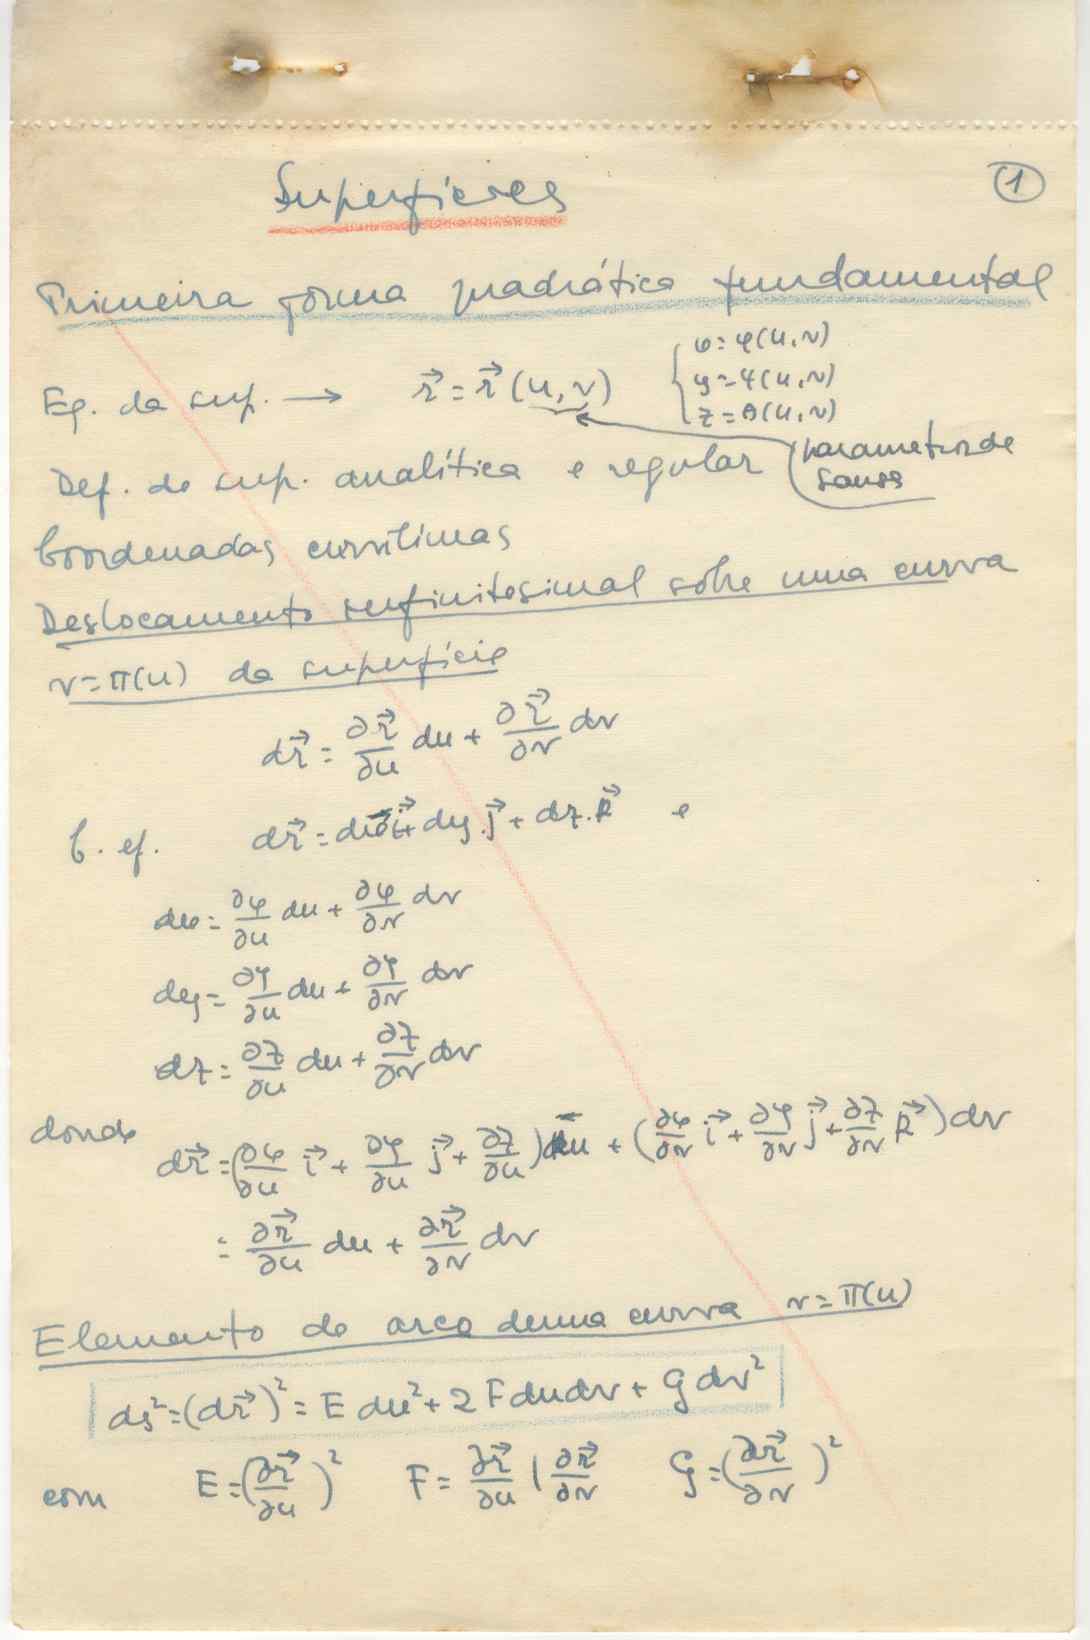 Superfícies
①
Primeira forma quadrática fundamental
Eq. da sup. → r⃗ = r⃗ (u, v) { x = φ(u, v)
y = ψ(u, v)
z = θ(u, v)
parametros de
Gauss
Def. de sup. analítica e regular
Coordenadas curvilíneas
Deslocamento infinitesimal sobre uma curva
v = π(u) da superfície
dr⃗ = ∂r⃗/∂u du + ∂r⃗/∂v dv
C. ef. dr⃗ = dx i⃗ + dy. j⃗ + dz. k⃗ e
dx = ∂φ/∂u du + ∂φ/∂v dv
dy = ∂ψ/∂u du + ∂ψ/∂v dv
dz = ∂z/∂u du + ∂z/∂v dv
donde
dr⃗ = (∂φ/∂u i⃗ + ∂ψ/∂u j⃗ + ∂z/∂u) du + (∂φ/∂v i⃗ + ∂ψ/∂v j⃗ + ∂z/∂v k⃗) dv
= ∂r⃗/∂u du + ∂r⃗/∂v dv
Elemento de arco duma curva v = π(u)
ds² = (dr⃗)² = E du² + 2 F du dv + G dv²
com E = (∂r⃗/∂u)² F = ∂r⃗/∂u | ∂r⃗/∂v G = (∂r⃗/∂v)²